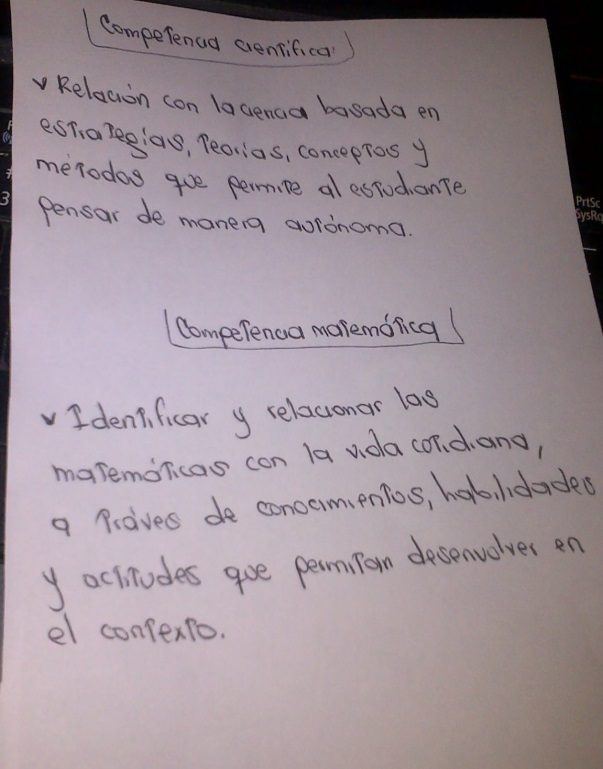 Competencia científica
✓ Relación con la ciencia basada en
estrategias, teorías, conceptos y
métodos que permite al estudiante
pensar de manera autónoma.
Competencia matemática
✓ Identificar y relacionar las
matemáticas con la vida cotidiana,
a tráves de conocimientos, habilidades
y actitudes que permitan desenvolver en
el contexto.
3
PrtSc
SysRq